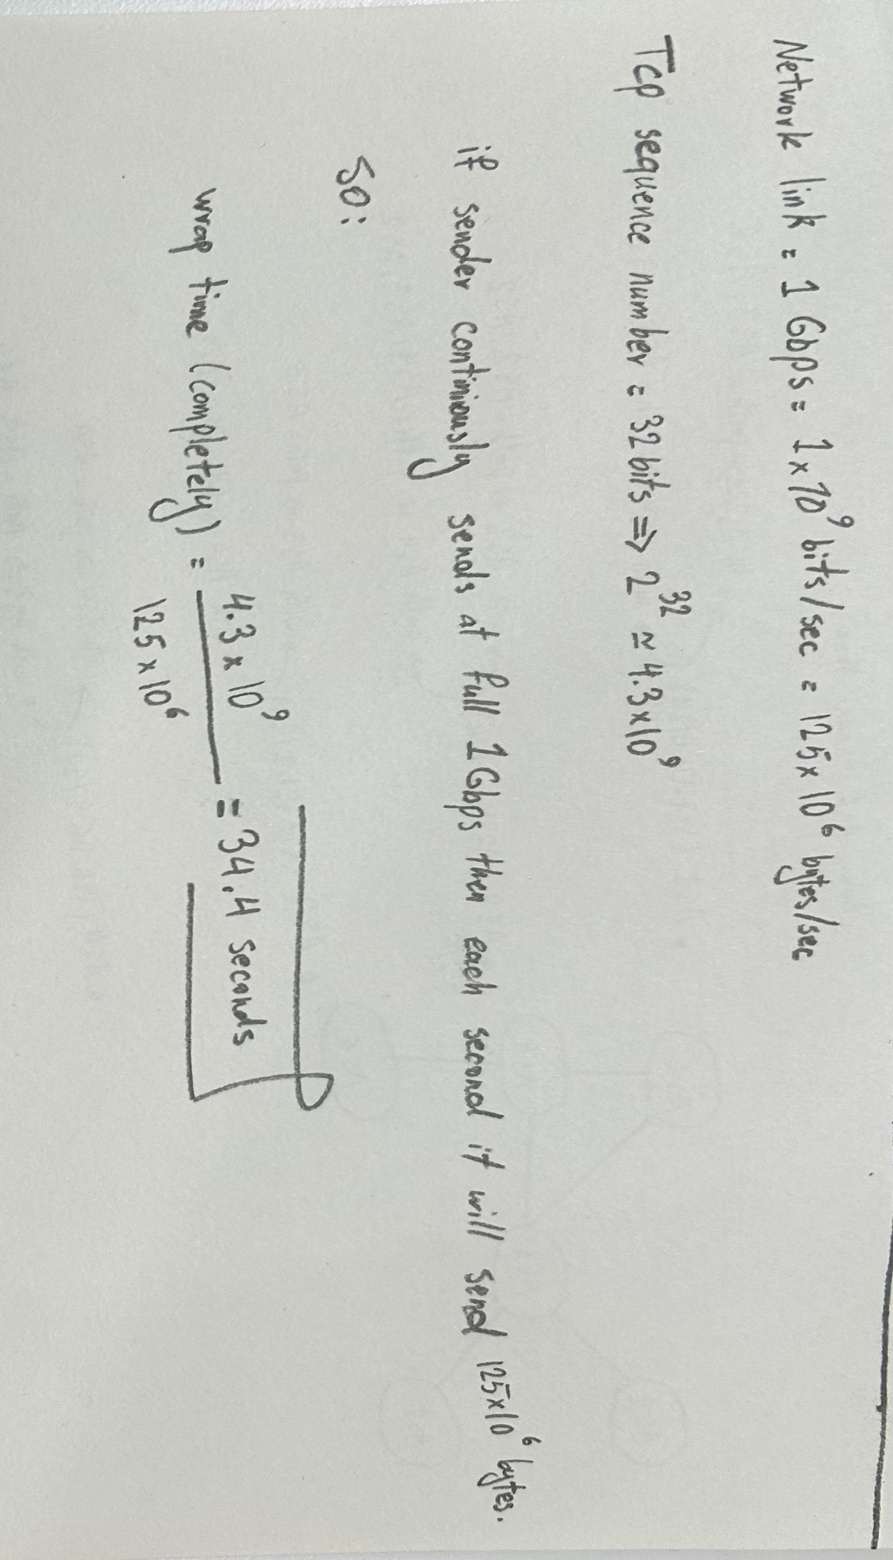 Network link = 1 Gbps = 1 × 10⁹ bits/sec = 125 × 10⁶ bytes/sec
Tcp sequence number = 32 bits ⇒ 2³² ≃ 4.3 × 10⁹
if sender continiously sends at full 1 Gbps then each second it will send 125 × 10⁶ bytes.
So:
wrap time (completely) = 4.3 × 10⁹ / 125 × 10⁶ = 34.4 seconds